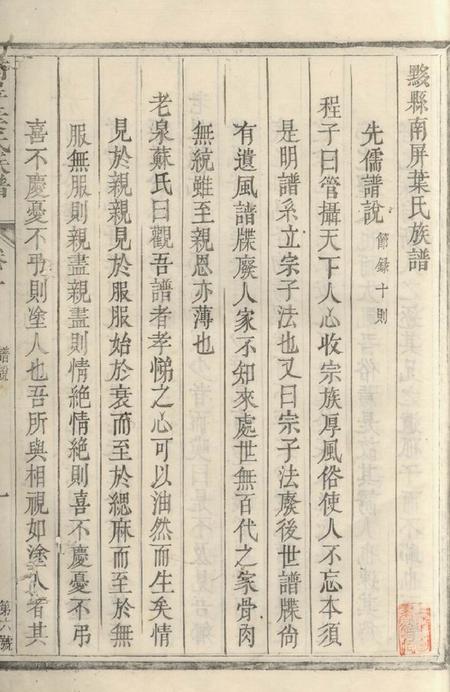 黟縣南屏葉氏族譜
先儒譜說 節錄十則
程子曰管攝天下人心收宗族厚風俗使人不忘本須
是明譜系立宗子法也又曰宗子法廢後世譜牒尙
有遺風譜牒廢人家不知來處世無百代之家骨肉
無統雖至親恩亦薄也
老泉蘇氏曰觀吾譜者孝悌之心可以油然而生矣情
見於親親見於服服始於衰而至於緦麻而至於無
服無服則親盡親盡則情絕情絕則喜不慶憂不弔
喜不慶憂不弔則塗人也吾所與相視如塗人者其
譜說
一
第六號